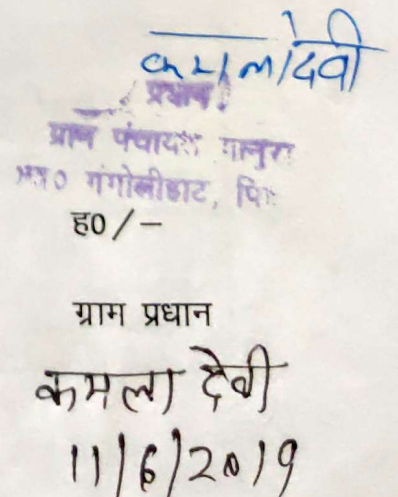 कमलादेवी
प्रधान
ग्राम पंचायत
गंगोलीहाट,
ह0/-
ग्राम प्रधान
कमला देवी
11/6/2019